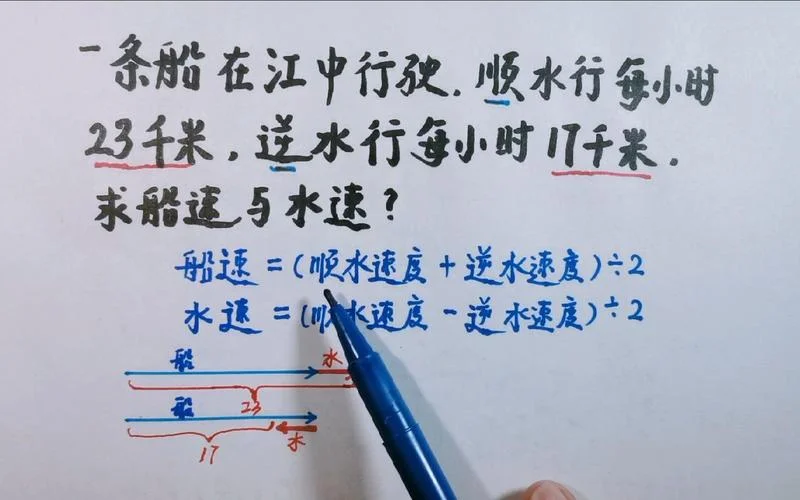 一条船在江中行驶.顺水行每小时
23千米,逆水行每小时17千米.
求船速与水速?
船速=(顺水速度+逆水速度)÷2
水速=(顺水速度-逆水速度)÷2
船 水
23
船
17 水